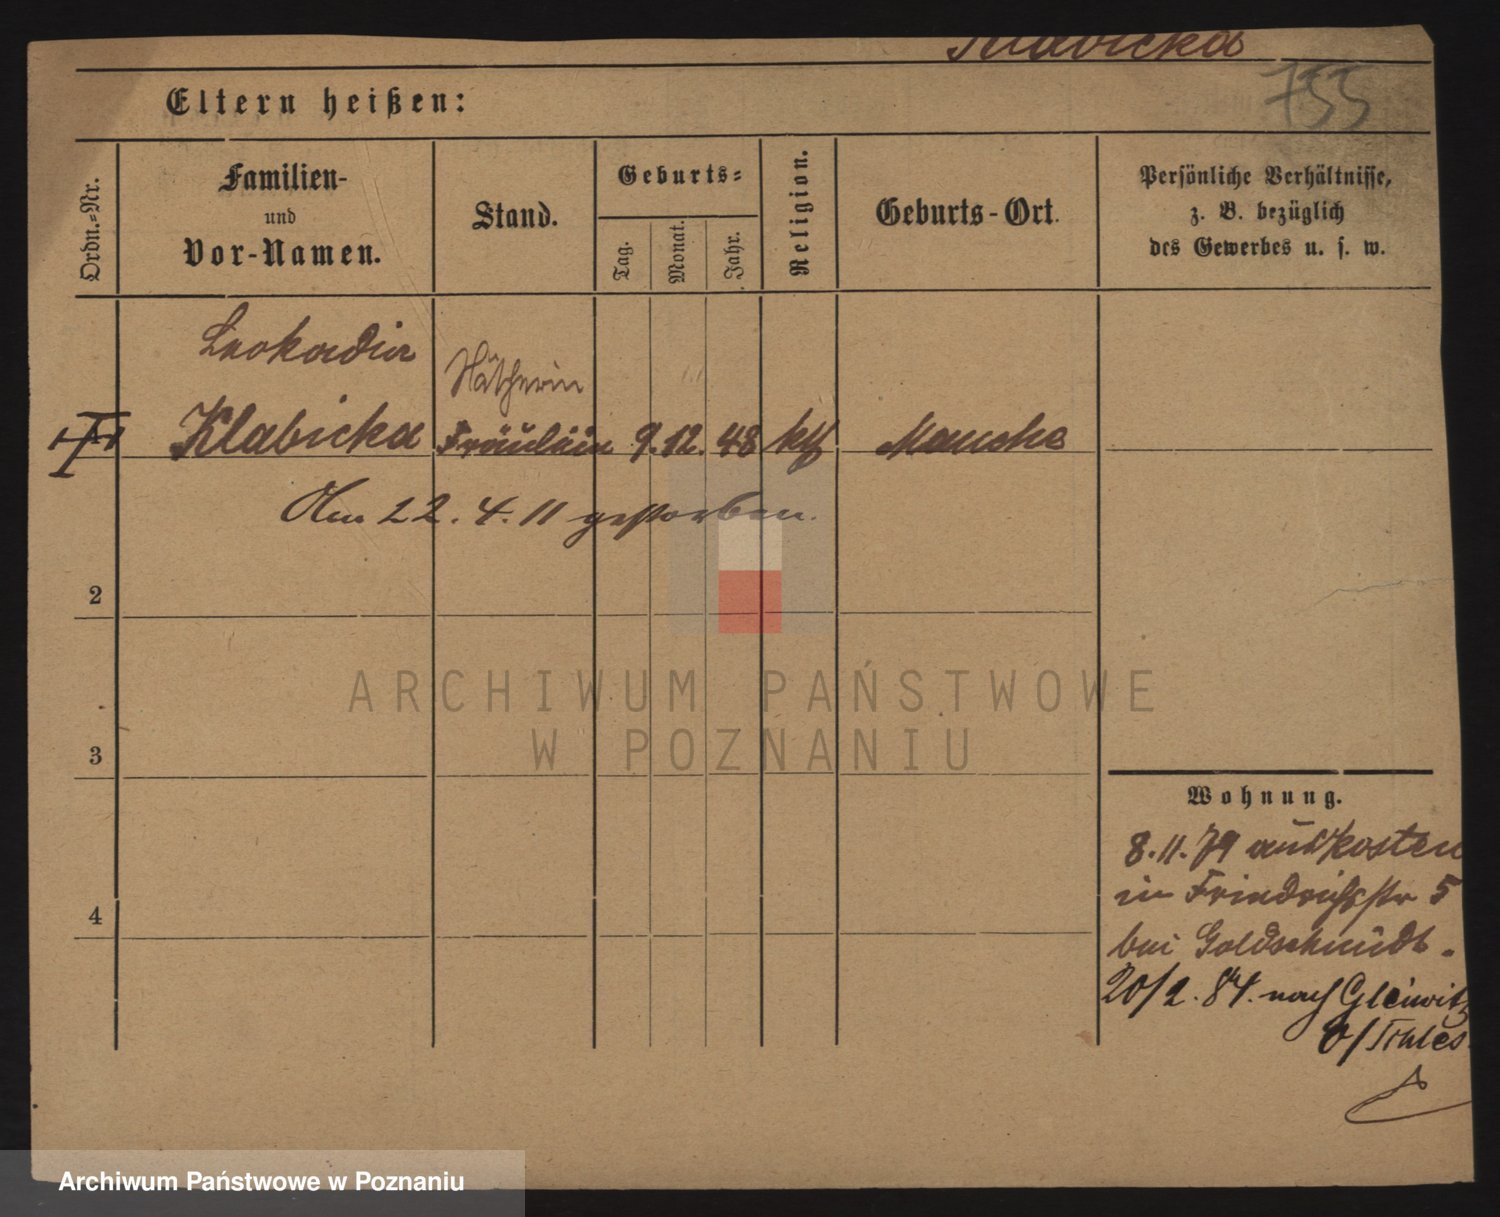 Klabicka
755
Eltern heißen:
Ordn.-Nr.
Familien-
und
Vor-Namen.
Stand.
Geburts-
Tag.
Monat.
Jahr.
Religion.
Geburts-Ort.
Persönliche Verhältnisse,
z. B. bezüglich
des Gewerbes u. s. w.
Leokadia
Näherin
Klabicka Fräulein 9. 12. 48 kth Mansche
Am 22. 4. 11 gestorben.
2
3
4
Wohnung.
8. 11. 79
in Friedrichsstr 5
bei Goldschmidt.
20/2. 84. nach Gleiwitz
O/Schles.
ARCHIWUM PAŃSTWOWE
W POZNANIU
Archiwum Państwowe w Poznaniu